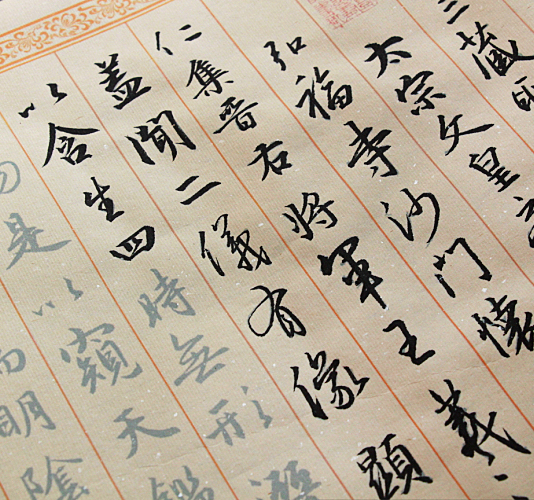 三藏
太宗文皇
弘福寺沙門懷
仁集晉右將軍王羲
蓋聞二儀有像顯
以含生四時无形潛
是以窺天鑑
明陰